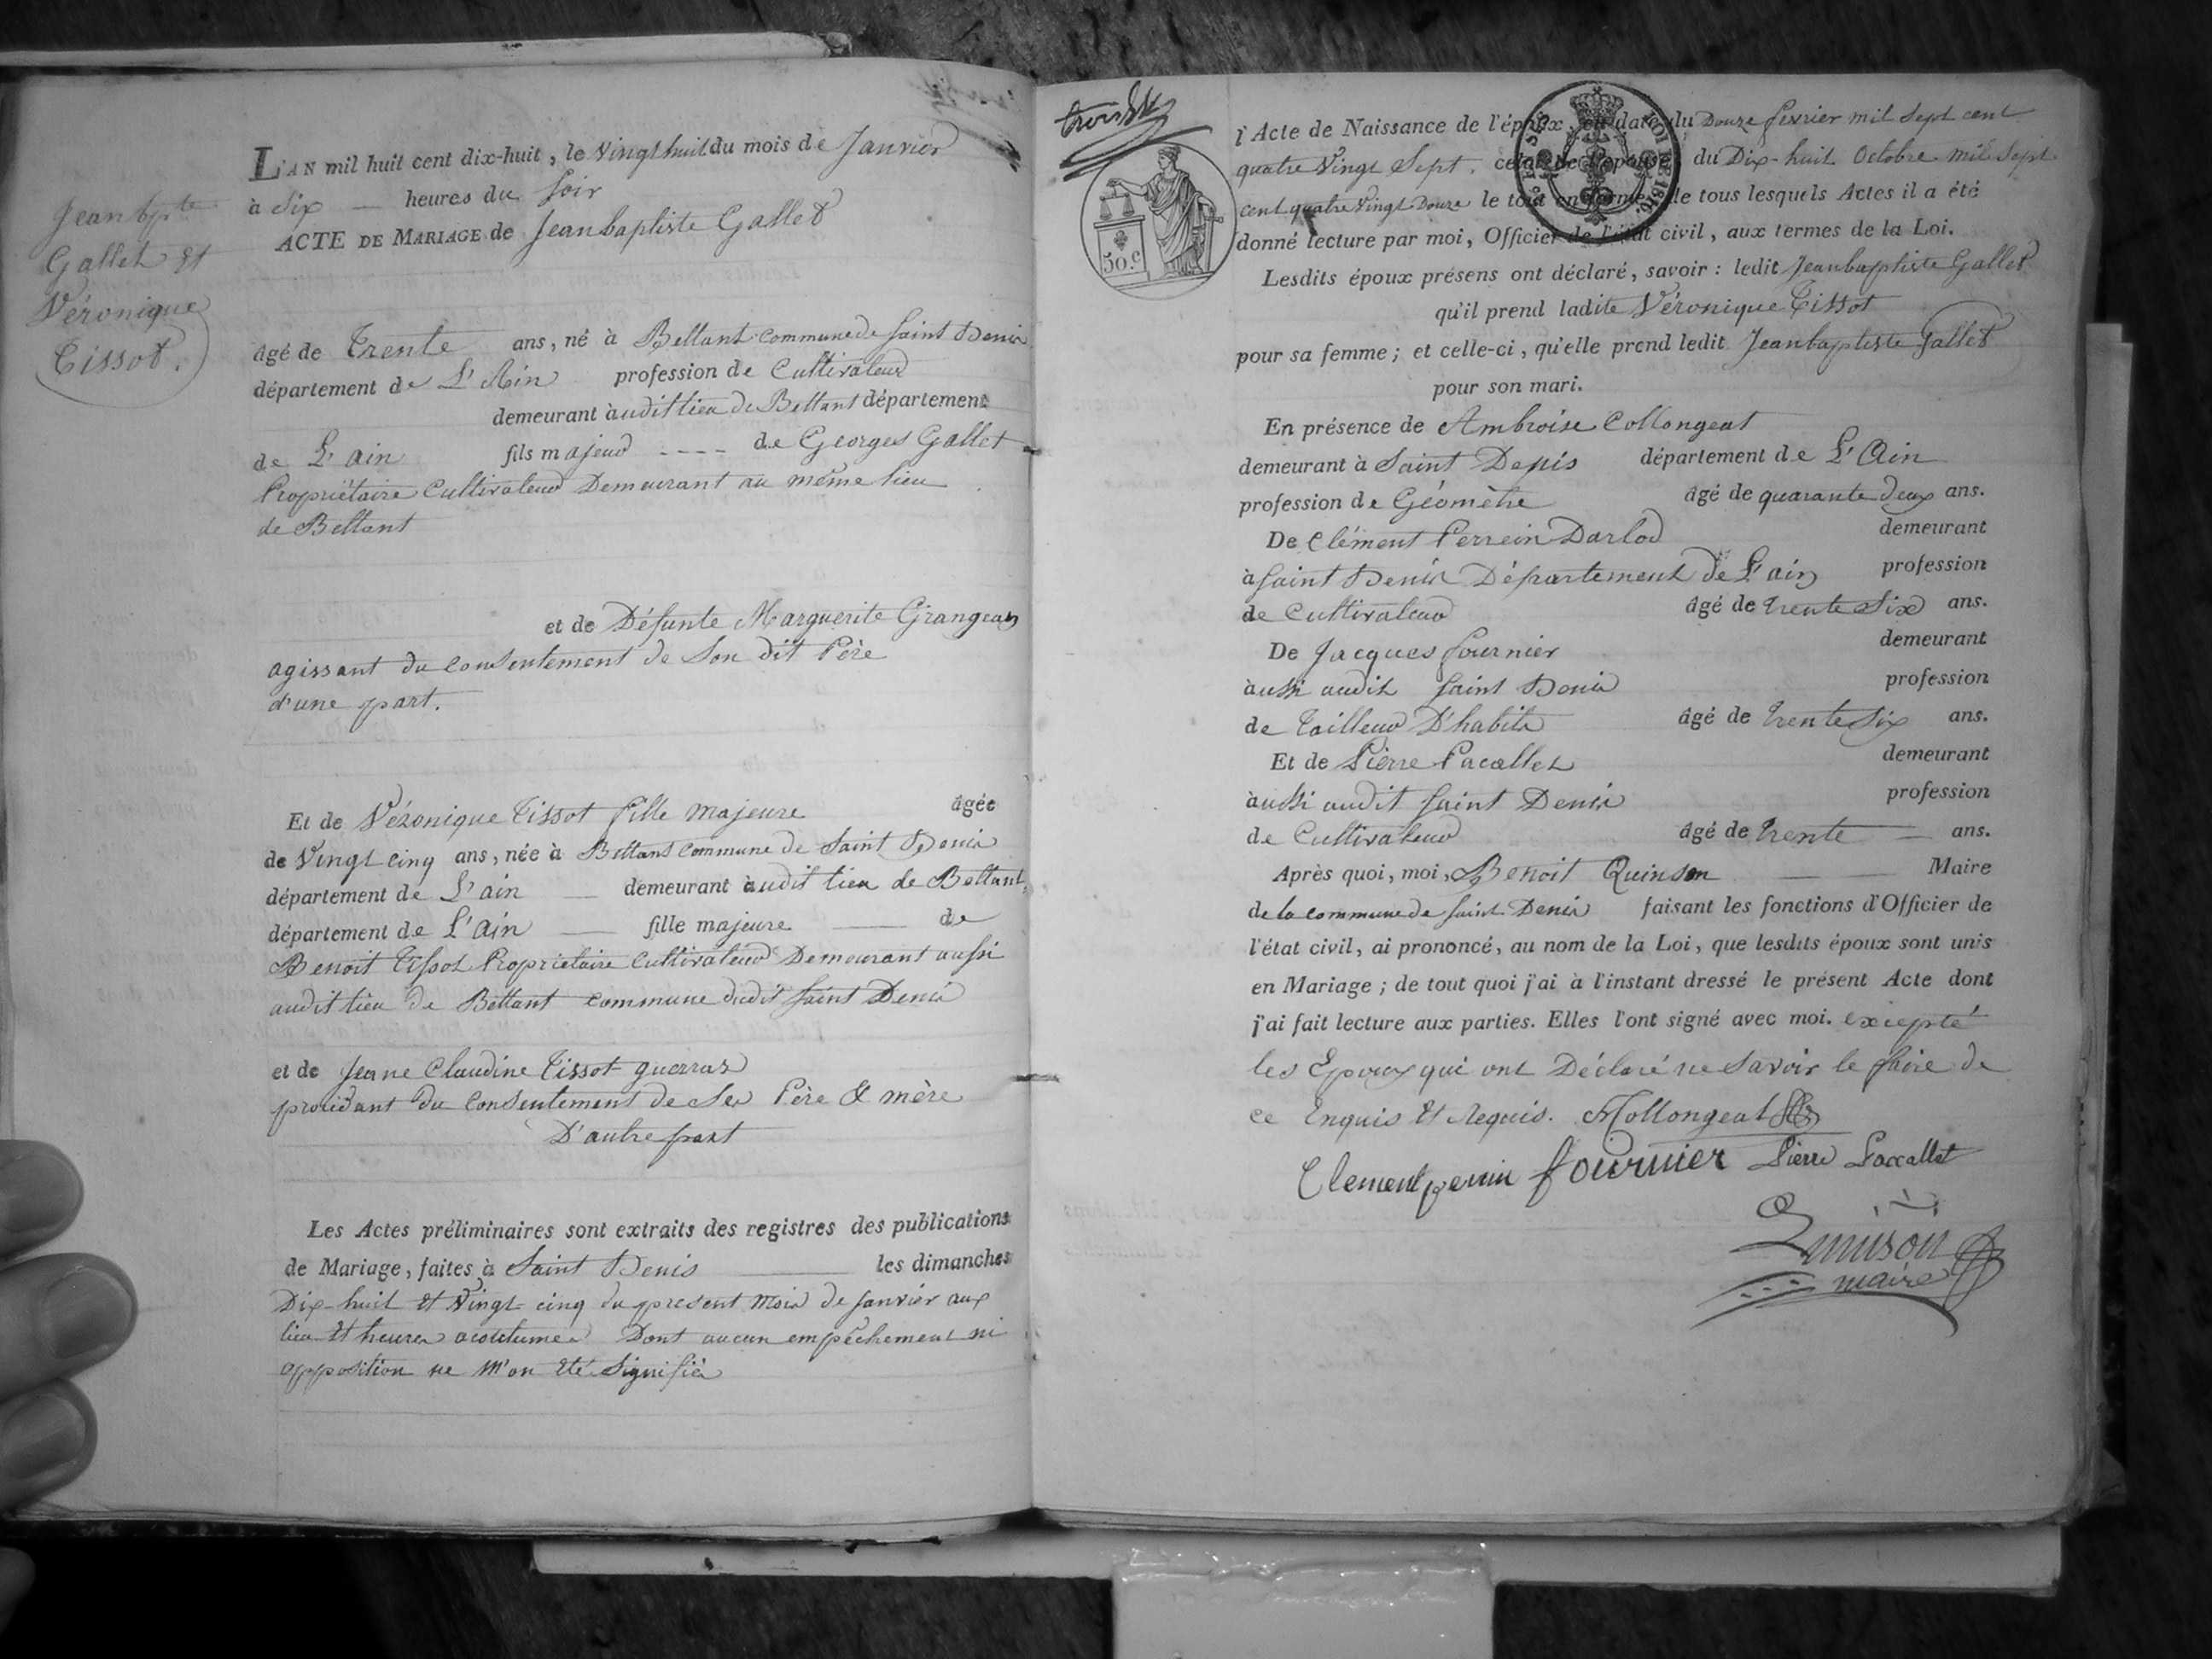 Jean bpte
Gallet et
Véronique
Tissot.
L'AN mil huit cent dix-huit, le Vingt huit du mois de Janvier
à Six heures du Soir
ACTE DE MARIAGE de Jeanbaptiste Gallet
âgé de Trente ans, né à Bettant Commune de Saint Denis
département de L'Ain profession de Cultivateur
demeurant audit lieu de Bettant département
de L'ain fils majeur ---- de Georges Gallet
Propriétaire Cultivateur Demeurant au même lieu
de Bettant
et de Défunte Marguerite Grangean
agissant du consentement de Son dit Père
d'une part.
Et de Véronique Tissot fille majeure âgée
de Vingt cinq ans, née à Bettant Commune de Saint Denis
département de L'ain demeurant audit lieu de Bettant
département de L'Ain fille majeure de
Benoit Tissot Propriétaire Cultivateur Demeurant aussi
audit lieu de Bettant commune dudit Saint Denis
et de Jeane Claudine Tissot guerras
procédant du Consentement de Ses Père & mère
D'autre part
Les Actes préliminaires sont extraits des registres des publications
de Mariage, faites à Saint Denis les dimanches
Dix-huit et Vingt cinq du present Mois de Janvier aux
lieu et heures acoutumée Dont aucun empêchement ni
opposition ne M'on été Signifiés
50.c
LOI DE 1816.
l'Acte de Naissance de l'époux, en date du Douze fevrier mil Sept cent
quatre Vingt Sept. celui de l'épouse, du Dix-huit Octobre mil Sept
cent quatre Vingt Douze le tout en forme, de tous lesquels Actes il a été
donné lecture par moi, Officier de l'état civil, aux termes de la Loi.
Lesdits époux présens ont déclaré, savoir : ledit Jeanbaptiste Gallet
qu'il prend ladite Véronique Tissot
pour sa femme; et celle-ci, qu'elle prend ledit Jeanbaptiste Gallet
pour son mari.
En présence de Ambroise Collongeat
demeurant à Saint Denis département de L'Ain
profession de Géomètre âgé de quarante deux ans.
De Clément Perrein Darlod demeurant
à Saint Denis Département de L'ain profession
de Cultivateur âgé de trente Six ans.
De Jacques fournier demeurant
aussi audit Saint Denis profession
de Tailleur D'habits âgé de trente Six ans.
Et de Pierre Pacallet demeurant
aussi audit Saint Denis profession
de Cultivateur âgé de trente ans.
Après quoi, moi, Benoit Quinson Maire
de la commune de Saint Denis faisant les fonctions d'Officier de
l'état civil, ai prononcé, au nom de la Loi, que lesdits époux sont unis
en Mariage; de tout quoi j'ai à l'instant dressé le présent Acte dont
j'ai fait lecture aux parties. Elles l'ont signé avec moi. excepté
les Epoux qui ont Déclaré ne Savoir le faire de
ce Enquis et Requis. Collongeat
Clement perrin fournier Pierre Paccallet
Quinson
maire